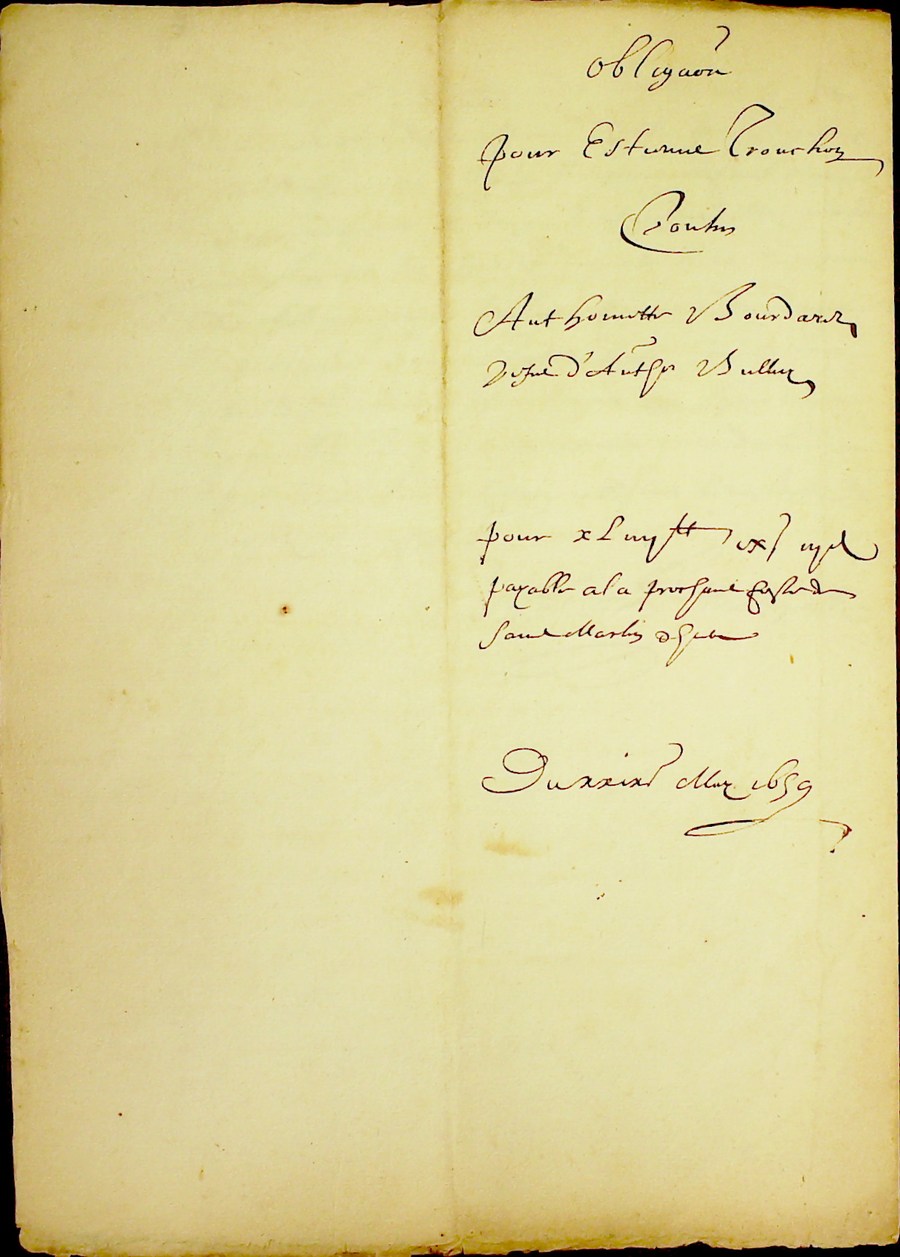 obligaõn
pour Estienne Tronchon
Contre
Anthoinette Bourdaret
vefve d'Anthe Bullin
pour xLiiij lt ixs iijd
payable a la prochaine feste de
Sainct Martin d'hiver
Du xxixe May 1659